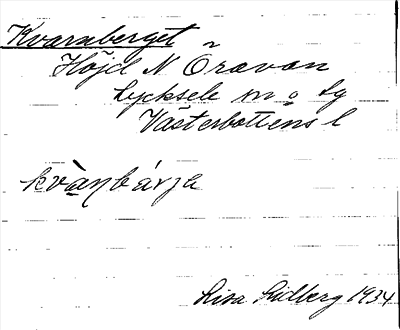 Kvarnberget
Höjd N Öravan
Lycksele m o lg
Västerbottens l
kvànbárja
Lisa Lidberg 1934